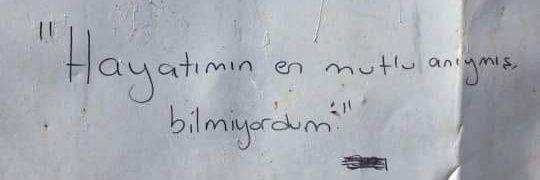 "Hayatımın en mutlu anıymış,
bilmiyordum."